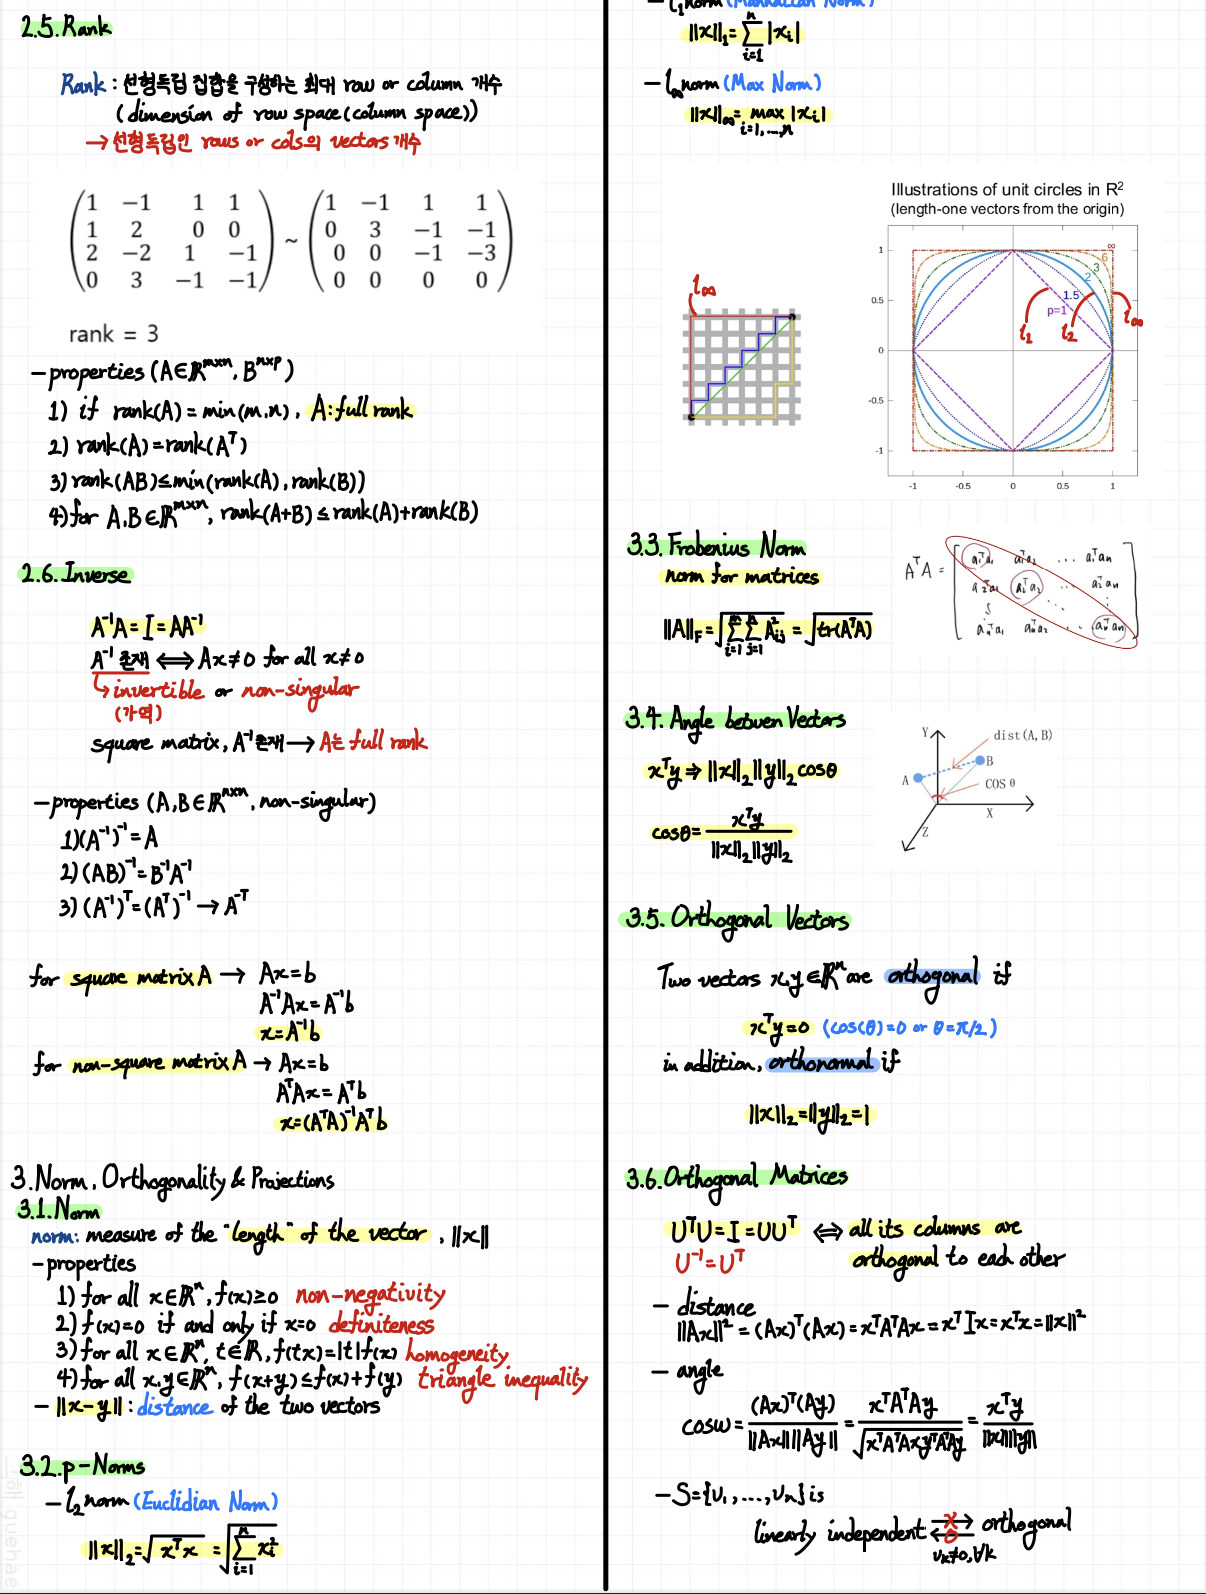 2.5. Rank
Rank : 선형독립 집합을 구성하는 최대 row or column 개수
(dimension of row space(column space))
→ 선형독립인 rows or cols의 vectors 개수
1 −1 1 1
1 2 0 0
2 −2 1 −1
0 3 −1 −1
~
1 −1 1 1
0 3 −1 −1
0 0 −1 −3
0 0 0 0
rank = 3
– properties (A∈ℝ^{m×n}, B^{n×p})
1) if rank(A) = min(m,n), A : full rank
2) rank(A) = rank(A^T)
3) rank(AB) ≤ min(rank(A), rank(B))
4) for A,B∈ℝ^{m×n}, rank(A+B) ≤ rank(A)+rank(B)
2.6. Inverse
A^{-1}A = I = AA^{-1}
A^{-1} 존재 ⟺ Ax≠0 for all x≠0
↳ invertible or non-singular
(가역)
square matrix, A^{-1}존재 → A는 full rank
– properties (A,B∈ℝ^{n×n}, non-singular)
1) (A^{-1})^{-1} = A
2) (AB)^{-1} = B^{-1}A^{-1}
3) (A^{-1})^T = (A^T)^{-1} → A^{-T}
for square matrix A → Ax = b
A^{-1}Ax = A^{-1}b
x = A^{-1}b
for non-square matrix A → Ax = b
A^TAx = A^Tb
x = (A^TA)^{-1}A^Tb
3. Norm, Orthogonality & Projections
3.1. Norm
norm: measure of the "length" of the vector, ||x||
– properties
1) for all x∈ℝ^n, f(x)≥0 non-negativity
2) f(x)=0 if and only if x=0 definiteness
3) for all x∈ℝ^n, t∈ℝ, f(tx)=|t|f(x) homogeneity
4) for all x,y∈ℝ^n, f(x+y)≤f(x)+f(y) triangle inequality
– ||x-y|| : distance of the two vectors
3.2. p-Norms
– l_2 norm (Euclidian Norm)
||x||_2 = √(x^Tx) = √(∑_{i=1}^{n} x_i^2)
– l_1 norm (Manhattan Norm)
||x||_1 = ∑_{i=1}^{n} |x_i|
– l_∞ norm (Max Norm)
||x||_∞ = max_{i=1,...,n} |x_i|
l_∞
Illustrations of unit circles in R²
(length-one vectors from the origin)
∞
6
3
2
1.5
p=1
l_1
l_2
l_∞
1
0.5
0
-0.5
-1
-1 -0.5 0 0.5 1
3.3. Frobenius Norm
norm for matrices
||A||_F = √(∑_{i=1}^{m} ∑_{j=1}^{n} A_{ij}^2) = √(tr(A^TA))
A^TA =
a_1^Ta_1 a_1^Ta_2 ... a_1^Ta_n
a_2^Ta_1 a_2^Ta_2 a_2^Ta_n
a_n^Ta_1 a_n^Ta_2 ... a_n^Ta_n
3.4. Angle betwen Vectors
x^Ty ⇒ ||x||_2 ||y||_2 cosθ
cosθ = x^Ty / ||x||_2||y||_2
Y
dist(A,B)
B
A
COS θ
X
Z
3.5. Orthogonal Vectors
Two vectors x,y∈ℝ^n are orthogonal if
x^Ty = 0 (cos(θ)=0 or θ=π/2)
in addition, orthonormal if
||x||_2 = ||y||_2 = 1
3.6. Orthogonal Matrices
U^TU = I = UU^T ⟺ all its columns are
U^{-1} = U^T orthogonal to each other
– distance
||Ax||^2 = (Ax)^T(Ax) = x^TA^TAx = x^TIx = x^Tx = ||x||^2
– angle
cosω = (Ax)^T(Ay) / ||Ax|| ||Ay|| = x^TA^TAy / √(x^TA^TAxy^TA^TAy) = x^Ty / ||x|| ||y||
– S={v_1, ..., v_n} is
linearly independent ⇄ orthogonal
X
O
v_k≠0, ∀k